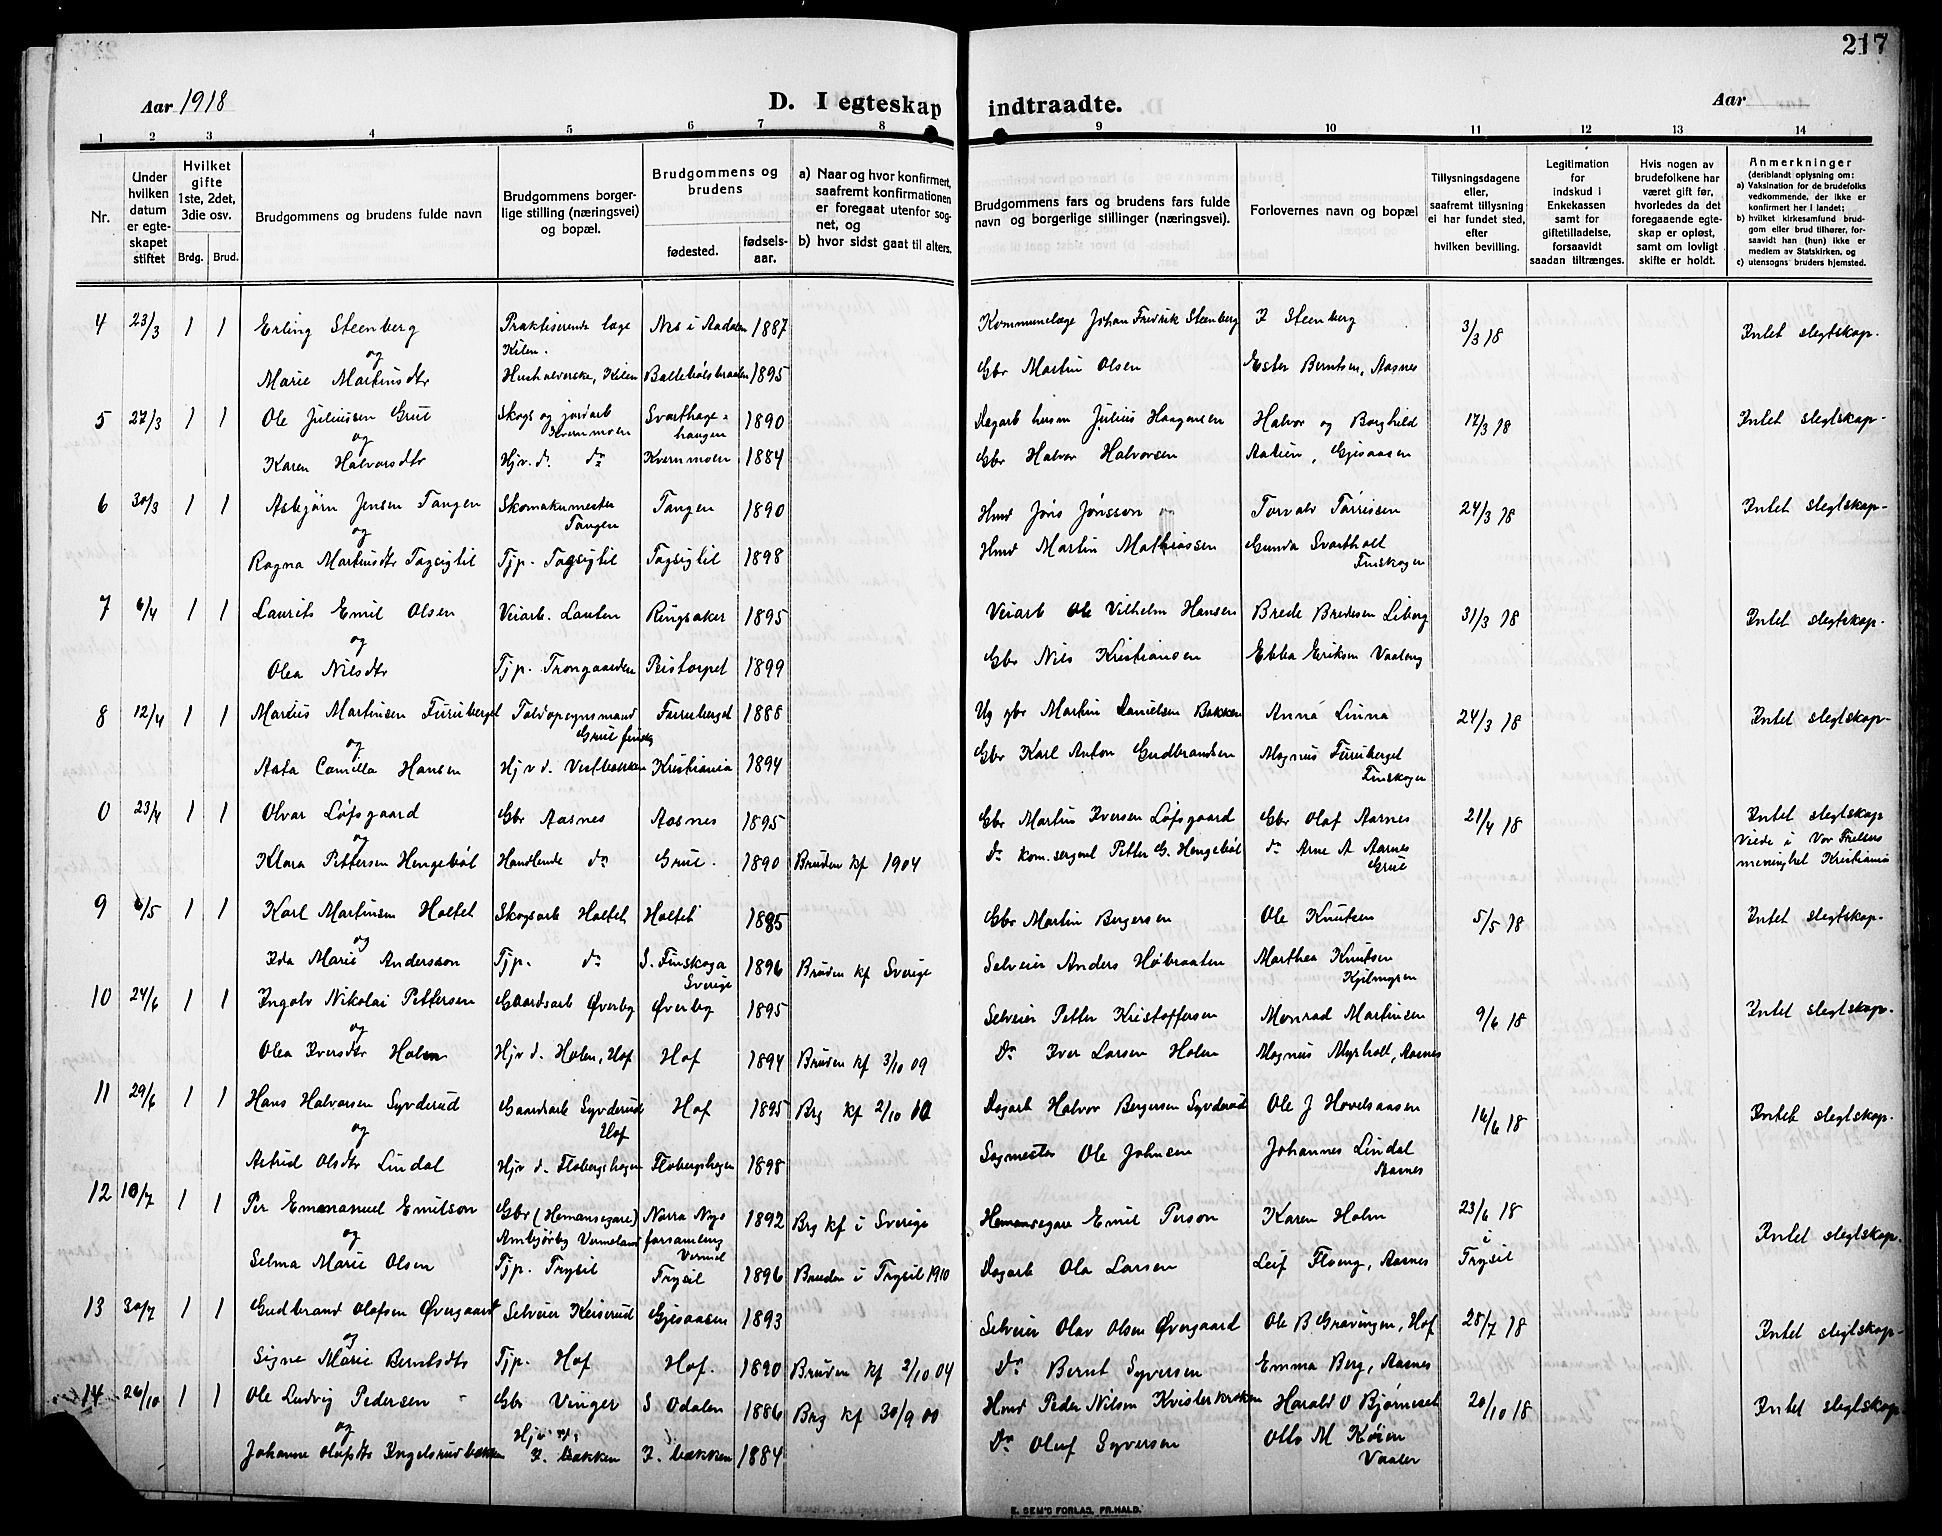 217
Aar 1918
D. I egteskap indtraadte.
Aar
1 2 3 4 5 6 7 8 9 10 11 12 13 14
Nr.
Under hvilken datum er egteskapet stiftet
Hvilket gifte 1ste, 2det, 3die osv.
Brdg. Brud.
Brudgommens og brudens fulde navn
Brudgommens borgerlige stilling (næringsvei) og bopæl.
Brudgommens og brudens
fødested.
fødselsaar.
a) Naar og hvor konfirmert, saafremt konfirmationen er foregaat utenfor sognet, og
b) hvor sidst gaat til alters.
Brudgommens fars og brudens fars fulde navn og borgerlige stillinger (næringsvei).
Forlovernes navn og bopæl
Tillysningsdagene eller, saafremt tillysning ei har fundet sted, efter hvilken bevilling.
Legitimation for indskud i Enkekassen samt for giftetilladelse, forsaavidt saadan tiltrænges.
Hvis nogen av brudefolkene har været gift før, hvorledes da det foregaaende egteskap er opløst, samt om lovligt skifte er holdt.
Anmerkninger (deriblandt oplysning om: a) Vaksination for de brudefolks vedkommende, der ikke er konfirmert her i landet; b) hvilket kirkesamfund brudgom eller brud tilhører, forsaavidt han (hun) ikke er medlem av Statskirken, og c) utensogns bruders hjemsted.
4 23/3 1 1 Erling Steenberg Praktiserende læge Kilen. Nes i Aadalen 1887 Kommunelæge Johan Fredrik Steenberg I Steenberg 3/3 18 Intet slegtskap.
og
Marie Martinsdtr Husholderske, Kilen Ballebølsbraaten 1895 Gbr Martin Olsen Ester Berntsen, Aasnes
5 27/3 1 1 Ole Juliussen Grue Skogs og jordarb Kvernmoen Svarthagehaugen 1890 Dagarb husm Julius Haagensen Halvor og Borghild 17/3 18 Intet slegtskap.
og
Karen Halvorsdtr Hjv. d. do Kvernmoen 1884 Gbr Halvor Halvorsen Aatien, Gjesaasen
6 30/3 1 1 Asbjørn Jensen Tangen Skomakermester Tangen Tangen 1890 Hmd Jøns Jønsson Torvald Tørrissen 24/3 18 Intet slegtskap.
og
Ragna Martinsdtr Tagsigtil Tjp. Tagsigtil Tagsigtil 1898 Hmd Martin Mathiassen Gunda Svartholt Finskogen
7 6/4 1 1 Laurits Emil Olsen Veiarb. Lauten Ringsaker 1895 Veiarb Ole Vilhelm Hansen Brede Bredesen Liberg 31/3 18 Intet slegtskap.
og
Olea Nilsdtr Tjp. Trongaarden Pristorpet 1899 Gbr Nils Kristiansen Ebba Eriksen Vaaberg
8 12/4 1 1 Marius Martinsen Furuberget Toldopsynsmand Grue finskg Furruberget 1888 Ug gbr Martin Danielsen Bakken Anna Linna 24/3 18 Intet slegtskap.
og
Asta Camilla Hansen Hjv d. Vestbakken Kristiania 1894 Gbr Karl Anton Gudbrandsen Magnus Furuberget Finskogen
0 23/4 1 1 Olvar Løfsgaard Gbr Aasnes Aasnes 1895 Gbr Martin Iversen Løfsgaard Gbr Olaf Aarnes 21/4 18 Intet slegtskap
og
Klara Pettersen Hengebøl Handlende do Grue. 1890 Bruden kf 1904 do kom.sergent Petter G. Hengebøl do Arne A Aarnes Grue Viede i Vor Frelsers menighet Kristiania
9 6/5 1 1 Karl Martinsen Holtet Skogsarb Holtet Holtet 1885 Gbr Martin Bergersen Ole Knutsen 5/5 18 Intet slegtskap.
og
Ida Marie Andersson Tjp. do S. Finskoga Sverige 1896 Bruden kf Sverige Selveier Anders Høbraaten Marthea Knutsen Kjølmyren
10 24/6 1 1 Ingolv Nikolai Pettersen Gaardsarb Øverby Øverby 1895 Selveier Petter Kristoffersen Monrad Martinsen 9/6 18 Intet slegtskap.
og
Olea Iversdtr Holen Hjv d. Holen, Hof Hof 1894 Bruden kf 3/10 09 Do Iver Larsen Holen Magnus Myrholt, Aasnes
11 29/6 1 1 Hans Halvorsen Syvderud Gaardsarb Syvderud Hof Hof 1895 Brg kf 2/10 10 Dagarb Halvor Bergersen Syvderud Ole J Hovelsaasen 16/6 18 Intet slegtskap.
og
Astrid Olsdtr Lindal Hjv d. Flobergshagen Flobergshagen 1898 Sagmester Ole Johnsen Johannes Lindal Aarnes
12 10/7 1 1 Per Emmanuel Emilson Gbr (Hemansegare) Ambjørby Vermeland Norra Nys forsamling Vermel 1892 Brg kf i Sverige Hemansegare Emil Person Karen Holm 23/6 18 i Trysil Intet slegtskap.
og
Selma Marie Olsen Tjp. Trysil Trysil 1896 Bruden i Trysil 1910 Dagarb Ola Larsen Leif Floeng, Aarnes
13 30/7 1 1 Gudbrand Olafsen Øvergaard Selveier Keiserud Gjesaasen 1893 Selveier Olav Olsen Øvergaard Ole B Gravingen, Hof 28/7 18 Intet slegtskap.
og
Signe Marie Berntsdtr Tjp. Hof Hof. 1890 Bruden kf 2/10 04 Do Bernt Syversen Emma Berg, Aarnes
14 26/10 1 1 Ole Ludvig Pedersen Gbr Vinger S Odalen 1886 Brg kf 30/9 00 Hmd Peder Nilsen Kvisterkroken Harald O Bjørneset 20/10 18 Intet slegtskap
og
Johanne Olafsdtr Ingelsrudbakken Hjv d. I. bakken I. bakken 1884 Do Oluf Syversen Otto M Køien Vaaler
E. SEM'S FORLAG, FR.HALD.